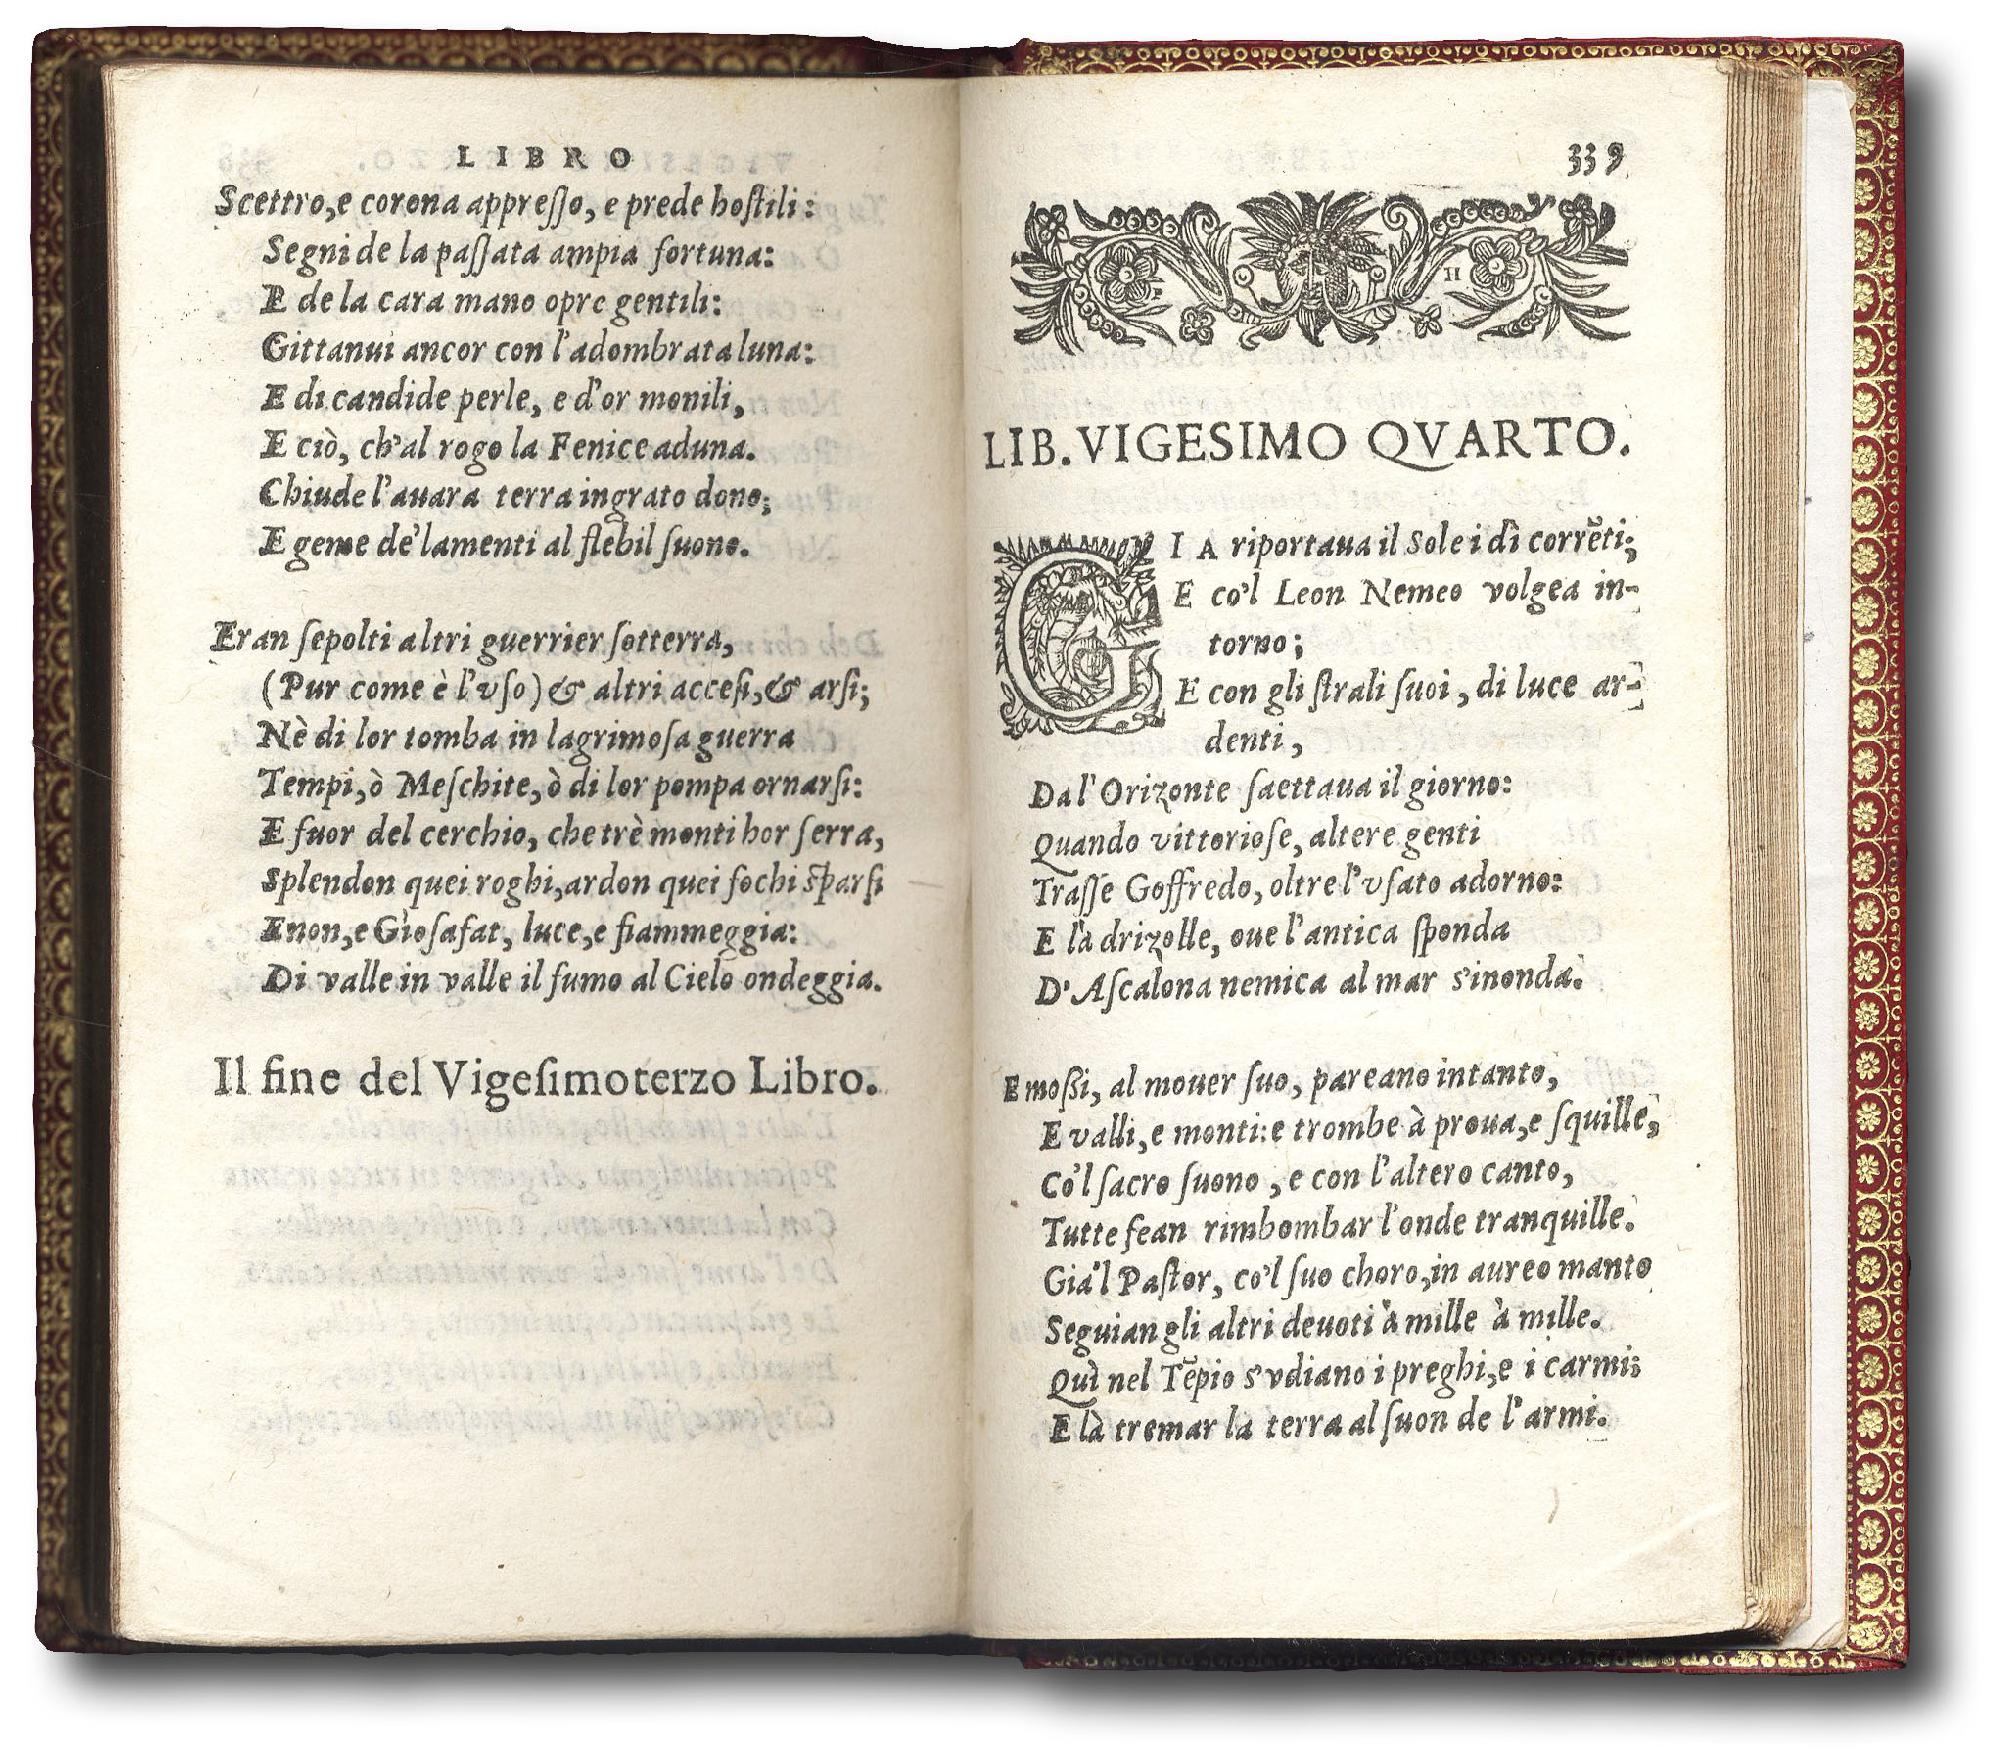 LIBRO
Scettro, e corona appreſſo, e prede hoſtili:
Segni de la paſſata ampia fortuna:
E de la cara mano opre gentili:
Gittanui ancor con l'adombrata luna:
E di candide perle, e d'or monili,
E ciò, ch'al rogo la Fenice aduna.
Chiude l'auara terra ingrato dono;
E geme de' lamenti al flebil ſuono.
Eran ſepolti altri guerrier ſotterra,
(Pur come è l'vſo) & altri acceſi, & arſi;
Nè di lor tomba in lagrimoſa guerra
Tempi, ò Meſchite, ò di lor pompa ornarſi:
E fuor del cerchio, che trè monti hor ſerra,
Splendon quei roghi, ardon quei fochi ſparſi
Enon, e Gioſafat, luce, e fiammeggia:
Di valle in valle il fumo al Cielo ondeggia.
Il fine del Vigeſimoterzo Libro.
339
LIB. VIGESIMO QVARTO.
GIA riportaua il Sole i dì corrẽti;
E co'l Leon Nemeo volgea in-
torno;
E con gli ſtrali ſuoi, di luce ar-
denti,
Da l'Orizonte ſaettaua il giorno:
Quando vittorioſe, altere genti
Traſſe Goffredo, oltre l'vſato adorno:
E là drizolle, oue l'antica ſponda
D'Aſcalona nemica al mar s'inonda.
E moßi, al mouer ſuo, pareano intanto,
E valli, e monti: e trombe à proua, e ſquille,
Co'l ſacro ſuono, e con l'altero canto,
Tutte fean rimbombar l'onde tranquille.
Già'l Paſtor, co'l ſuo choro, in aureo manto
Seguian gli altri deuoti à mille à mille.
Quì nel Tẽpio s'vdiano i preghi, e i carmi;
E là tremar la terra al ſuon de l'armi.